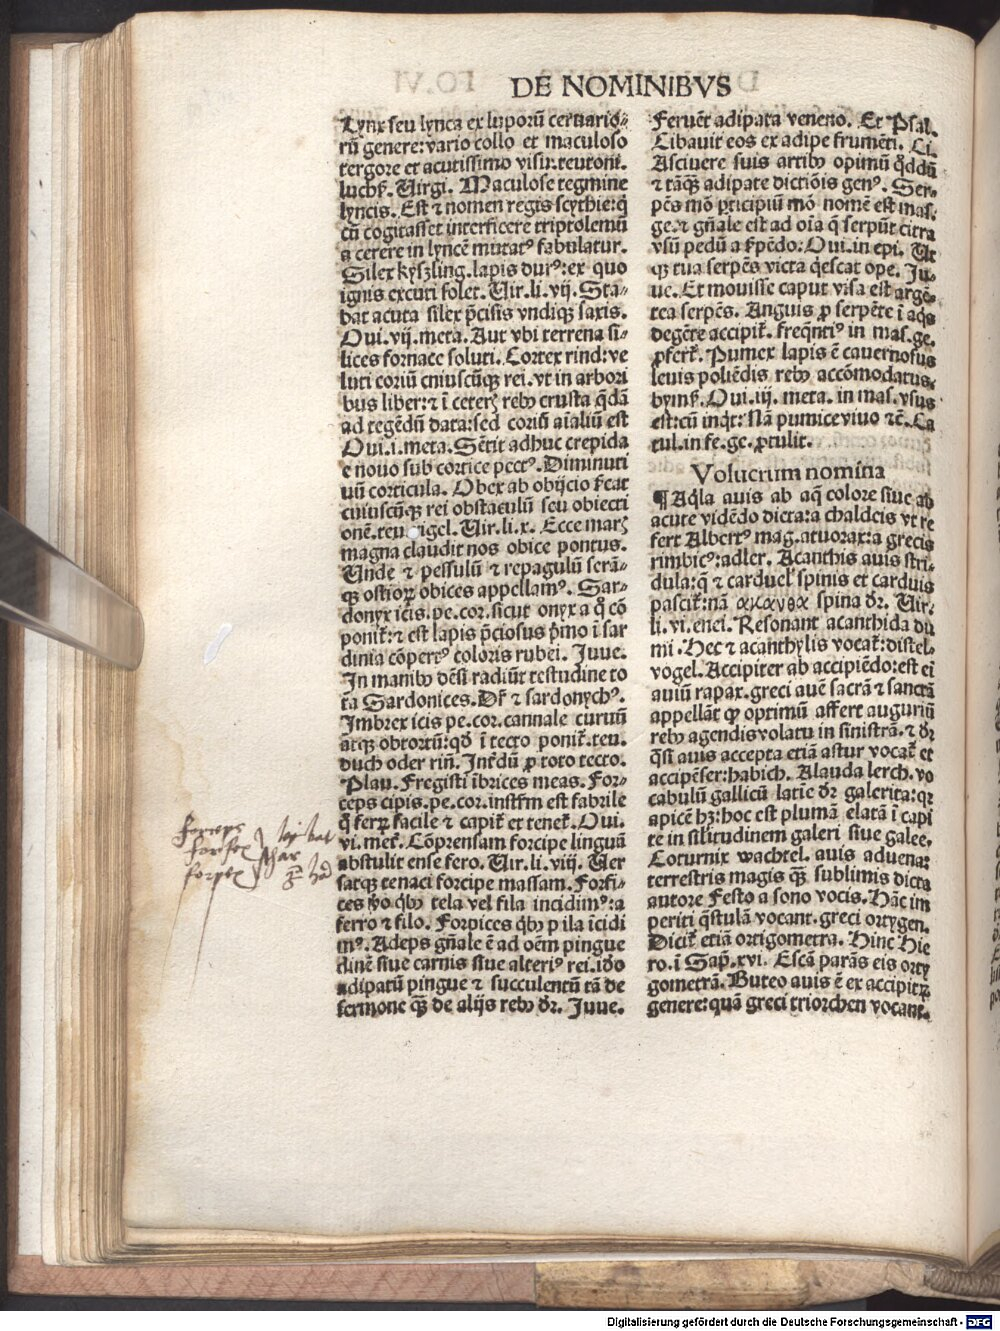 DE NOMINIBVS
Lynx seu lynca ex luporū ceruario⸗
rū genere: vario collo et maculoso
tergore et acutissimo visu. teutoni.
luchſz. Uirgi. Maculose tegmine
lyncis. Est ⁊ nomen regis scythie: q̄
cū cogitasset interficere triptolemū
a cerere in lyncē mutatꝰ fabulatur.
Silex kyszling. lapis durꝰ: ex quo
ignis excuti solet. Uir. li. vij. Sta⸗
bat acuta silex p̄cisis vndiqꝫ saxis.
Oui. vij. meta. Aut vbi terrena si⸗
lices fornace soluti. Cortex rind: ve
luti coriū cuiuscūqꝫ rei. vt in arbori
bus liber: ⁊ ī ceterꝭ rebꝰ crusta q̄dā
ad tegēdū data: sed coriū aīaliū est
Oui. i. meta. Sētit adhuc trepida
e nouo sub cortice pectꝰ. Diminuti
uū corticula. Obex ab obijcio ſ̄cat
cuiuscūqꝫ rei obstaculū seu obiecti
onē. teu. rigel. Uir. li. x. Ecce marꝭ
magna claudit nos obice pontus.
Unde ⁊ pessulū ⁊ repagulū serā⸗
qꝫ ostioꝝ obices appellamꝰ. Sar⸗
donyx icis. pe. cor. sicut onyx a q̊ cō
ponit̄: ⁊ est lapis p̄ciosus p̄mo ī sar
dinia cōpertꝰ coloris rubei. Juue.
In manibꝰ dēsi radiūt testudine to
ta Sardonices. Dr̄ ⁊ sardonychꝰ.
Imbrex icis pe. cor. cannale curuū
atqꝫ obtortū: qd̄ ī tecto ponit̄. teu.
duch oder rin̄. Intdū ꝓ toto tecto.
Plau. Fregisti ībrices meas. For⸗
ceps cipis. pe. cor. instrm̄ est fabrile
q̊ ferꝝ facile ⁊ capit̄ et tenet̄. Oui.
vi. met. Cōprensam forcipe linguā
abstulit ense fero. Uir. li. viij. Uer
satqꝫ tenaci forcipe massam. Forfi⸗
ces v̊o qbꝰ tela vel fila incidimꝰ: a
ferro ⁊ filo. Forpices qbꝰ pila īcidi
mꝰ. Adeps gn̄ale ē ad oēm pingue
dinē siue carnis siue alteriꝰ rei. ido
adipatū pingue ⁊ succulentū tā de
sermone qꝫ̄ de alijs rebꝰ dr̄. Juue.
Feruēt adipata veneno. Et Psal.
Cibauit eos ex adipe frumēti. Ci.
Asciuere suis artibꝰ opimū q̊ddū
⁊ tāqꝫ̄ adipate dictiōis genꝰ. Ser⸗
pēs mō ꝑticipiū mō nomē est mas.
ge. ⁊ gn̄ale est ad oīa q̄ serpūt citra
vsū pedū a ſ̄pēdo: Oui. in epi. Ut
qꝫ tua serpēs victa qescat ope. Ju⸗
ue. Et mouisse caput visa est argē⸗
tea serpēs. Anguis ꝓ serpēte ī aq̄s
degēte accipit̄. freqntiꝰ in mas. ge.
ꝓfert̄. Pumex lapis ē cauernosus
leuis poliēdis rebꝰ accōmodatus.
bymſz. Oui. iij. meta. in mas. vsus
est: cū inqt: Nā pumice viuo ⁊c̄. Ca
tul. in fe. ge. ꝓtulit.
Volucrum nomina
¶ Aqla auis ab aq̊ colore siue ab
acute vidēdo dicta: a chaldeis vt re
fert Albertꝰ mag. atuorax: a grecis
rimbicꝰ: adler. Acanthis auis stri⸗
dula: q̄ ⁊ carduel' spinis et carduis
pascit̄: nā ακανθα spina dr̄. Uir.
li. vi. enei. Resonant acanthida du
mi. Hec ⁊ acanthylis vocat̄: distel⸗
vogel. Accipiter ab accipiēdo: est ei
auiū rapax. greci auē sacrā ⁊ sanctā
appellāt qꝫ optimū affert auguriū
rebꝰ agendis volatu in sinistrā. ⁊ dr̄
q̄si auis accepta etiā astur vocat̄ et
accipēser: habich. Alauda lerch. vo
cabulū gallicū latīe dr̄ galerita: qꝛ
apicē hꝫ: hoc est plumā elatā ī capi
te in silitudinem galeri siue galee.
Coturnix wachtel. auis aduena:
terrestris magis qꝫ̄ sublimis dicta
autore Festo a sono vocis. Hāc im
periti q̄stulā vocant. greci ortygen.
Dicit̄ etiā ortigometra. Hinc Hie
ro. ī Sap̄. xvi. Escā parās eis orty
gometrā. Buteo auis ē ex accipitꝝ
genere: quā greci triorchen vocant.
forceps
forfex
forpex
schar